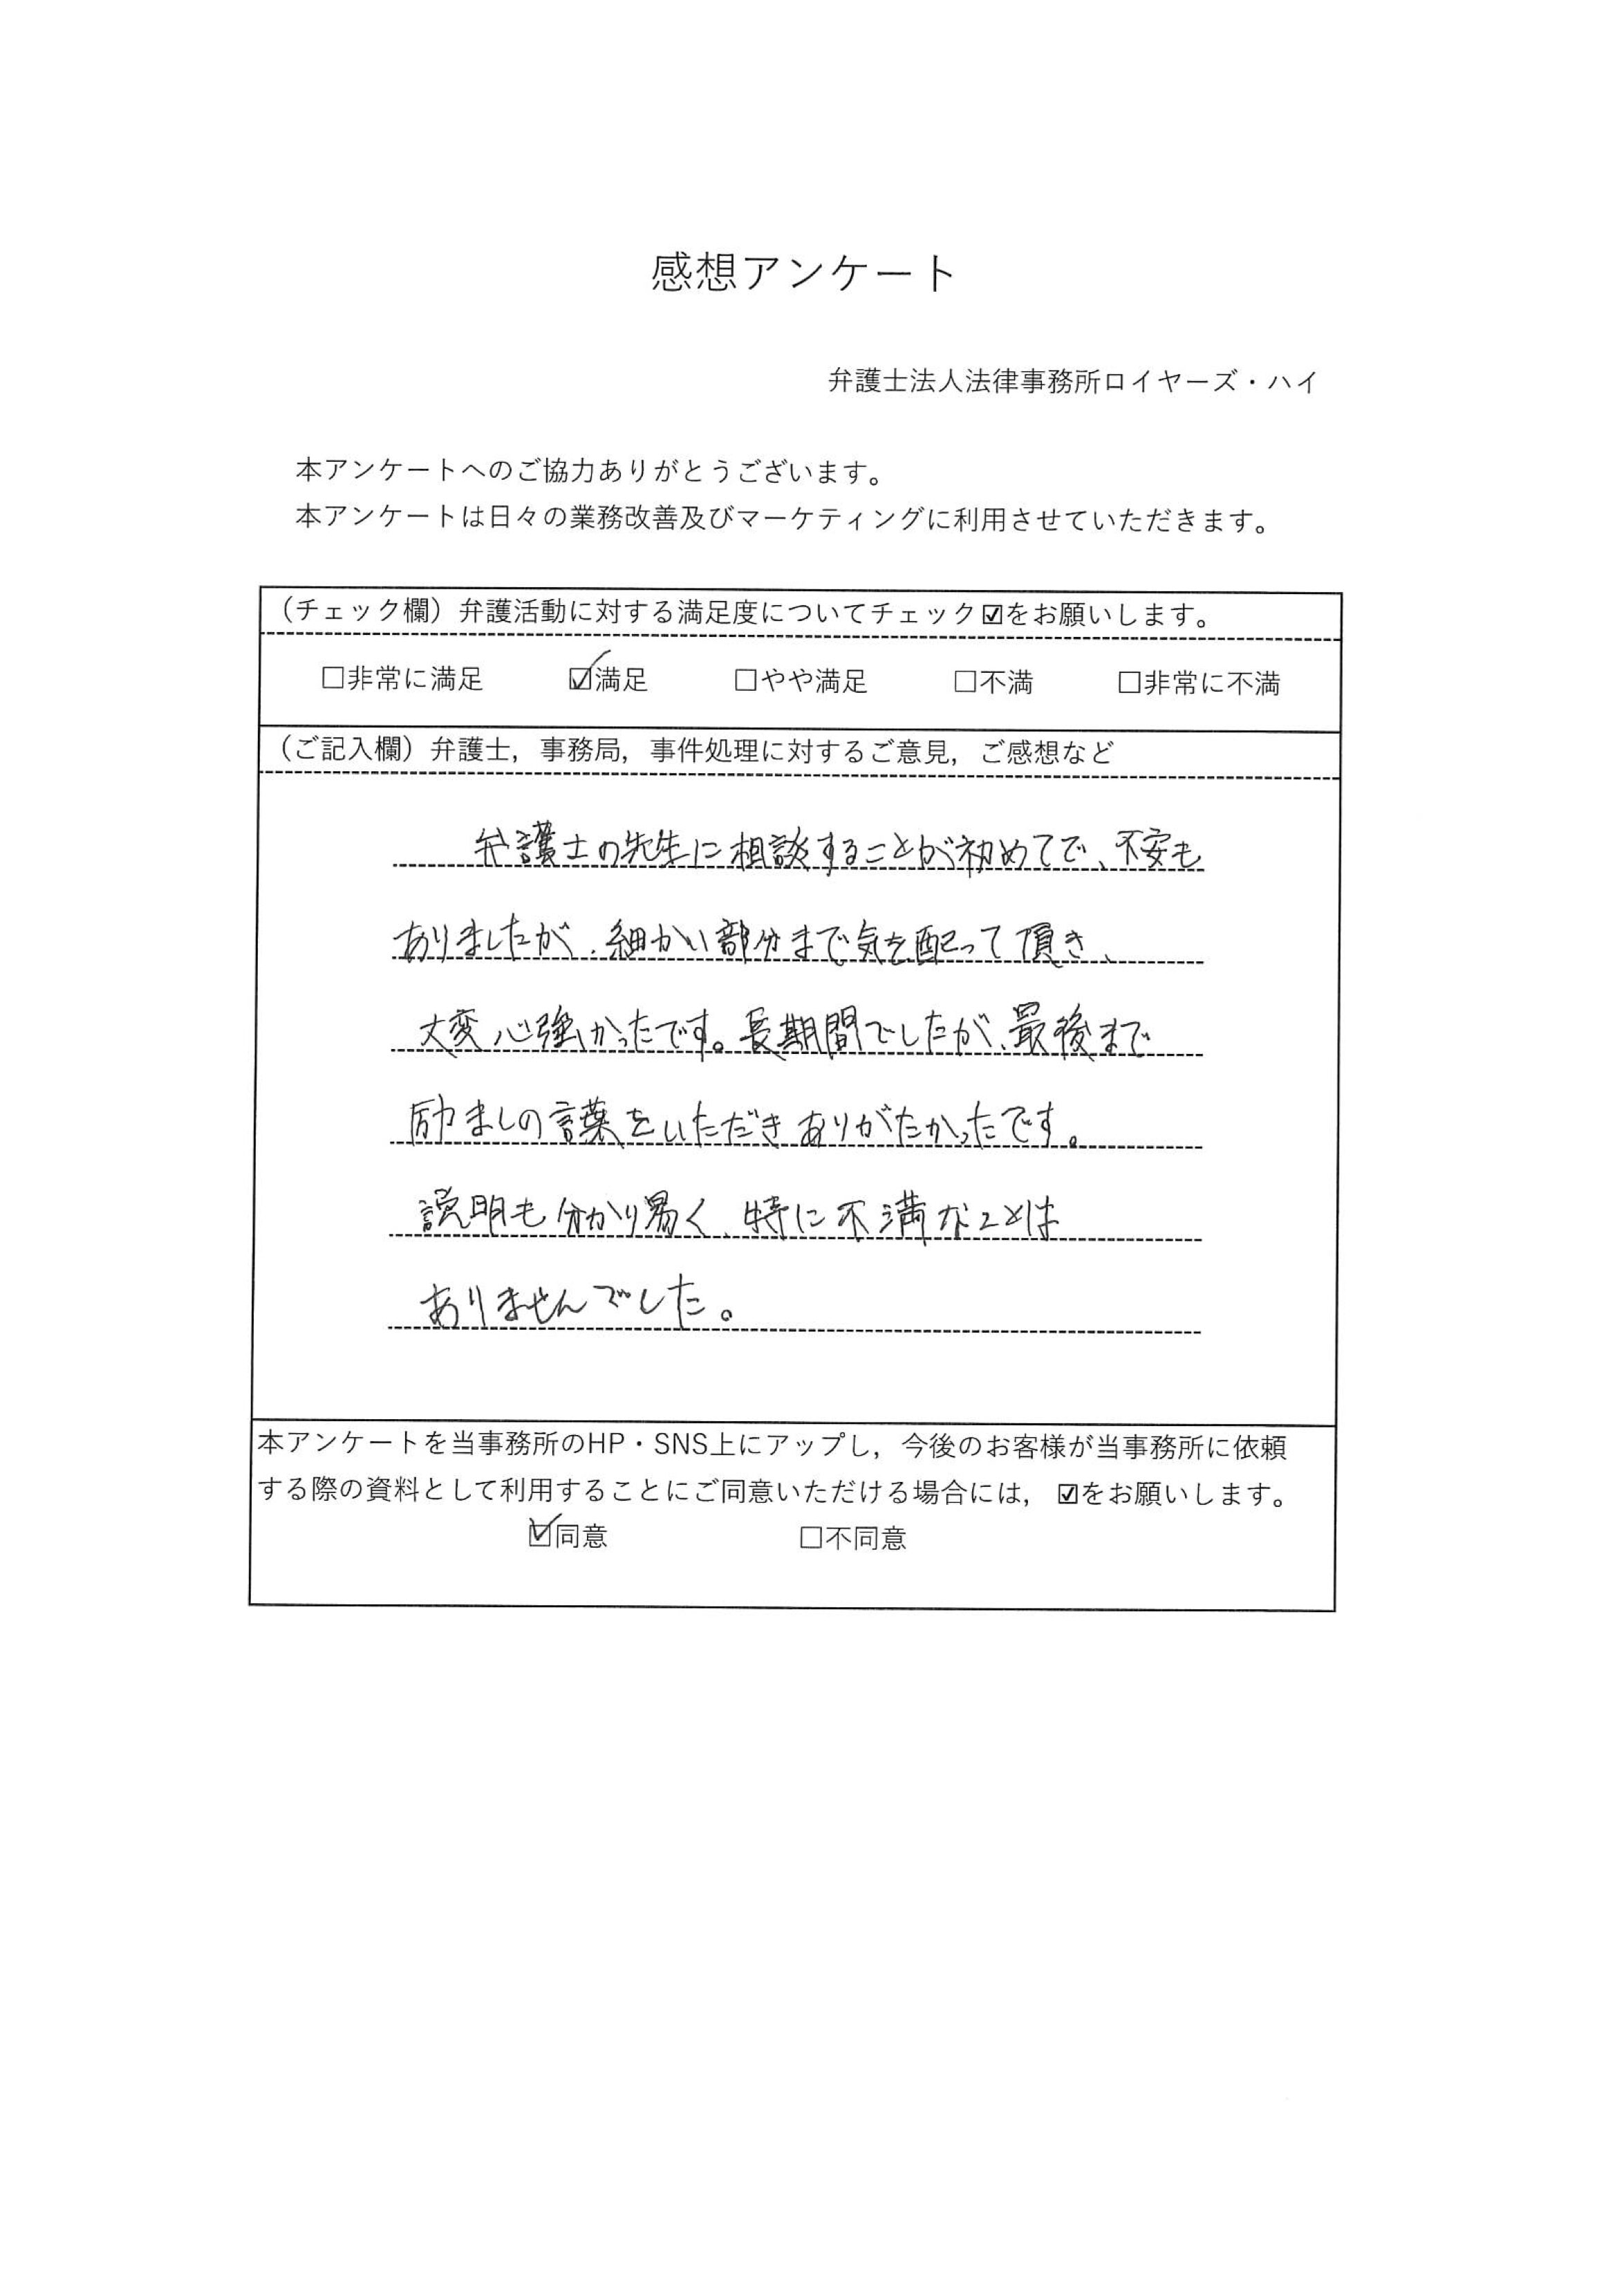 感想アンケート
弁護士法人法律事務所ロイヤーズ・ハイ
本アンケートへのご協力ありがとうございます。
本アンケートは日々の業務改善及びマーケティングに利用させていただきます。
（チェック欄）弁護活動に対する満足度についてチェック☑をお願いします。
□非常に満足 ☑満足 □やや満足 □不満 □非常に不満
（ご記入欄）弁護士，事務局，事件処理に対するご意見，ご感想など
弁護士の先生に相談することが初めてで、不安も
ありましたが、細かい部分まで気を配って頂き、
大変心強かったです。長期間でしたが、最後まで
励ましの言葉をいただきありがたかったです。
説明も分かり易く、特に不満なことは
ありませんでした。
本アンケートを当事務所のHP・SNS上にアップし，今後のお客様が当事務所に依頼
する際の資料として利用することにご同意いただける場合には，☑をお願いします。
☑同意 □不同意